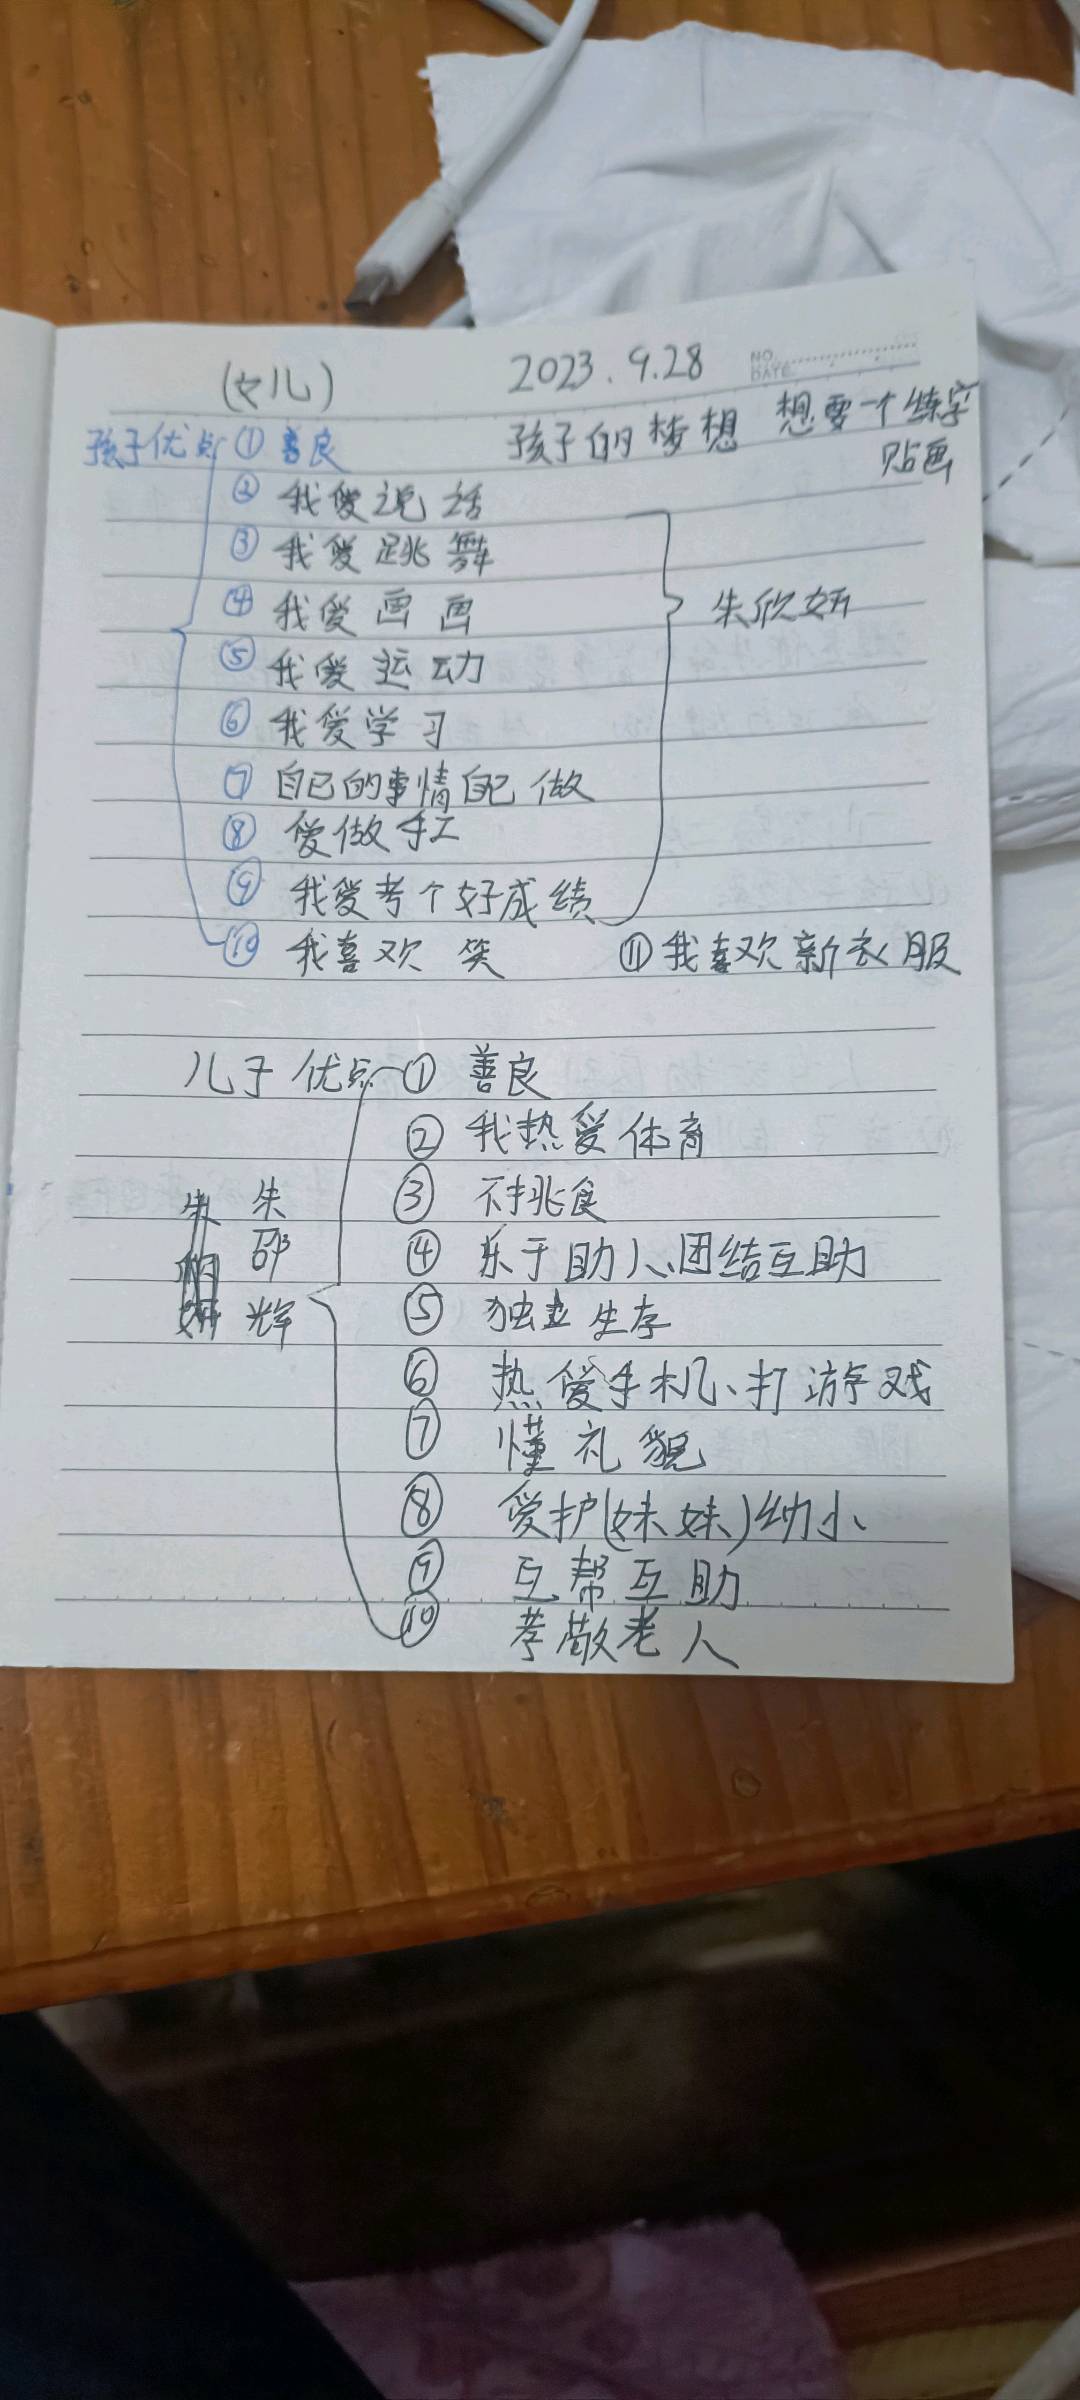 (女儿) 2023.9.28 NO.
DATE.
孩子优点 ① 善良 孩子的梦想 想要一个练字
贴画
② 我爱说话
③ 我爱跳舞
④ 我爱画画 朱欣妍
⑤ 我爱运动
⑥ 我爱学习
⑦ 自己的事情自己做
⑧ 爱做手工
⑨ 我爱考个好成绩
⑩ 我喜欢笑 ⑪ 我喜欢新衣服
儿子优点 ① 善良
② 我热爱体育
③ 不挑食
④ 乐于助人、团结互助
⑤ 独立生存
⑥ 热爱手机、打游戏
⑦ 懂礼貌
⑧ 爱护(妹妹)幼小、
⑨ 互帮互助
⑩ 孝敬老人
朱邵辉